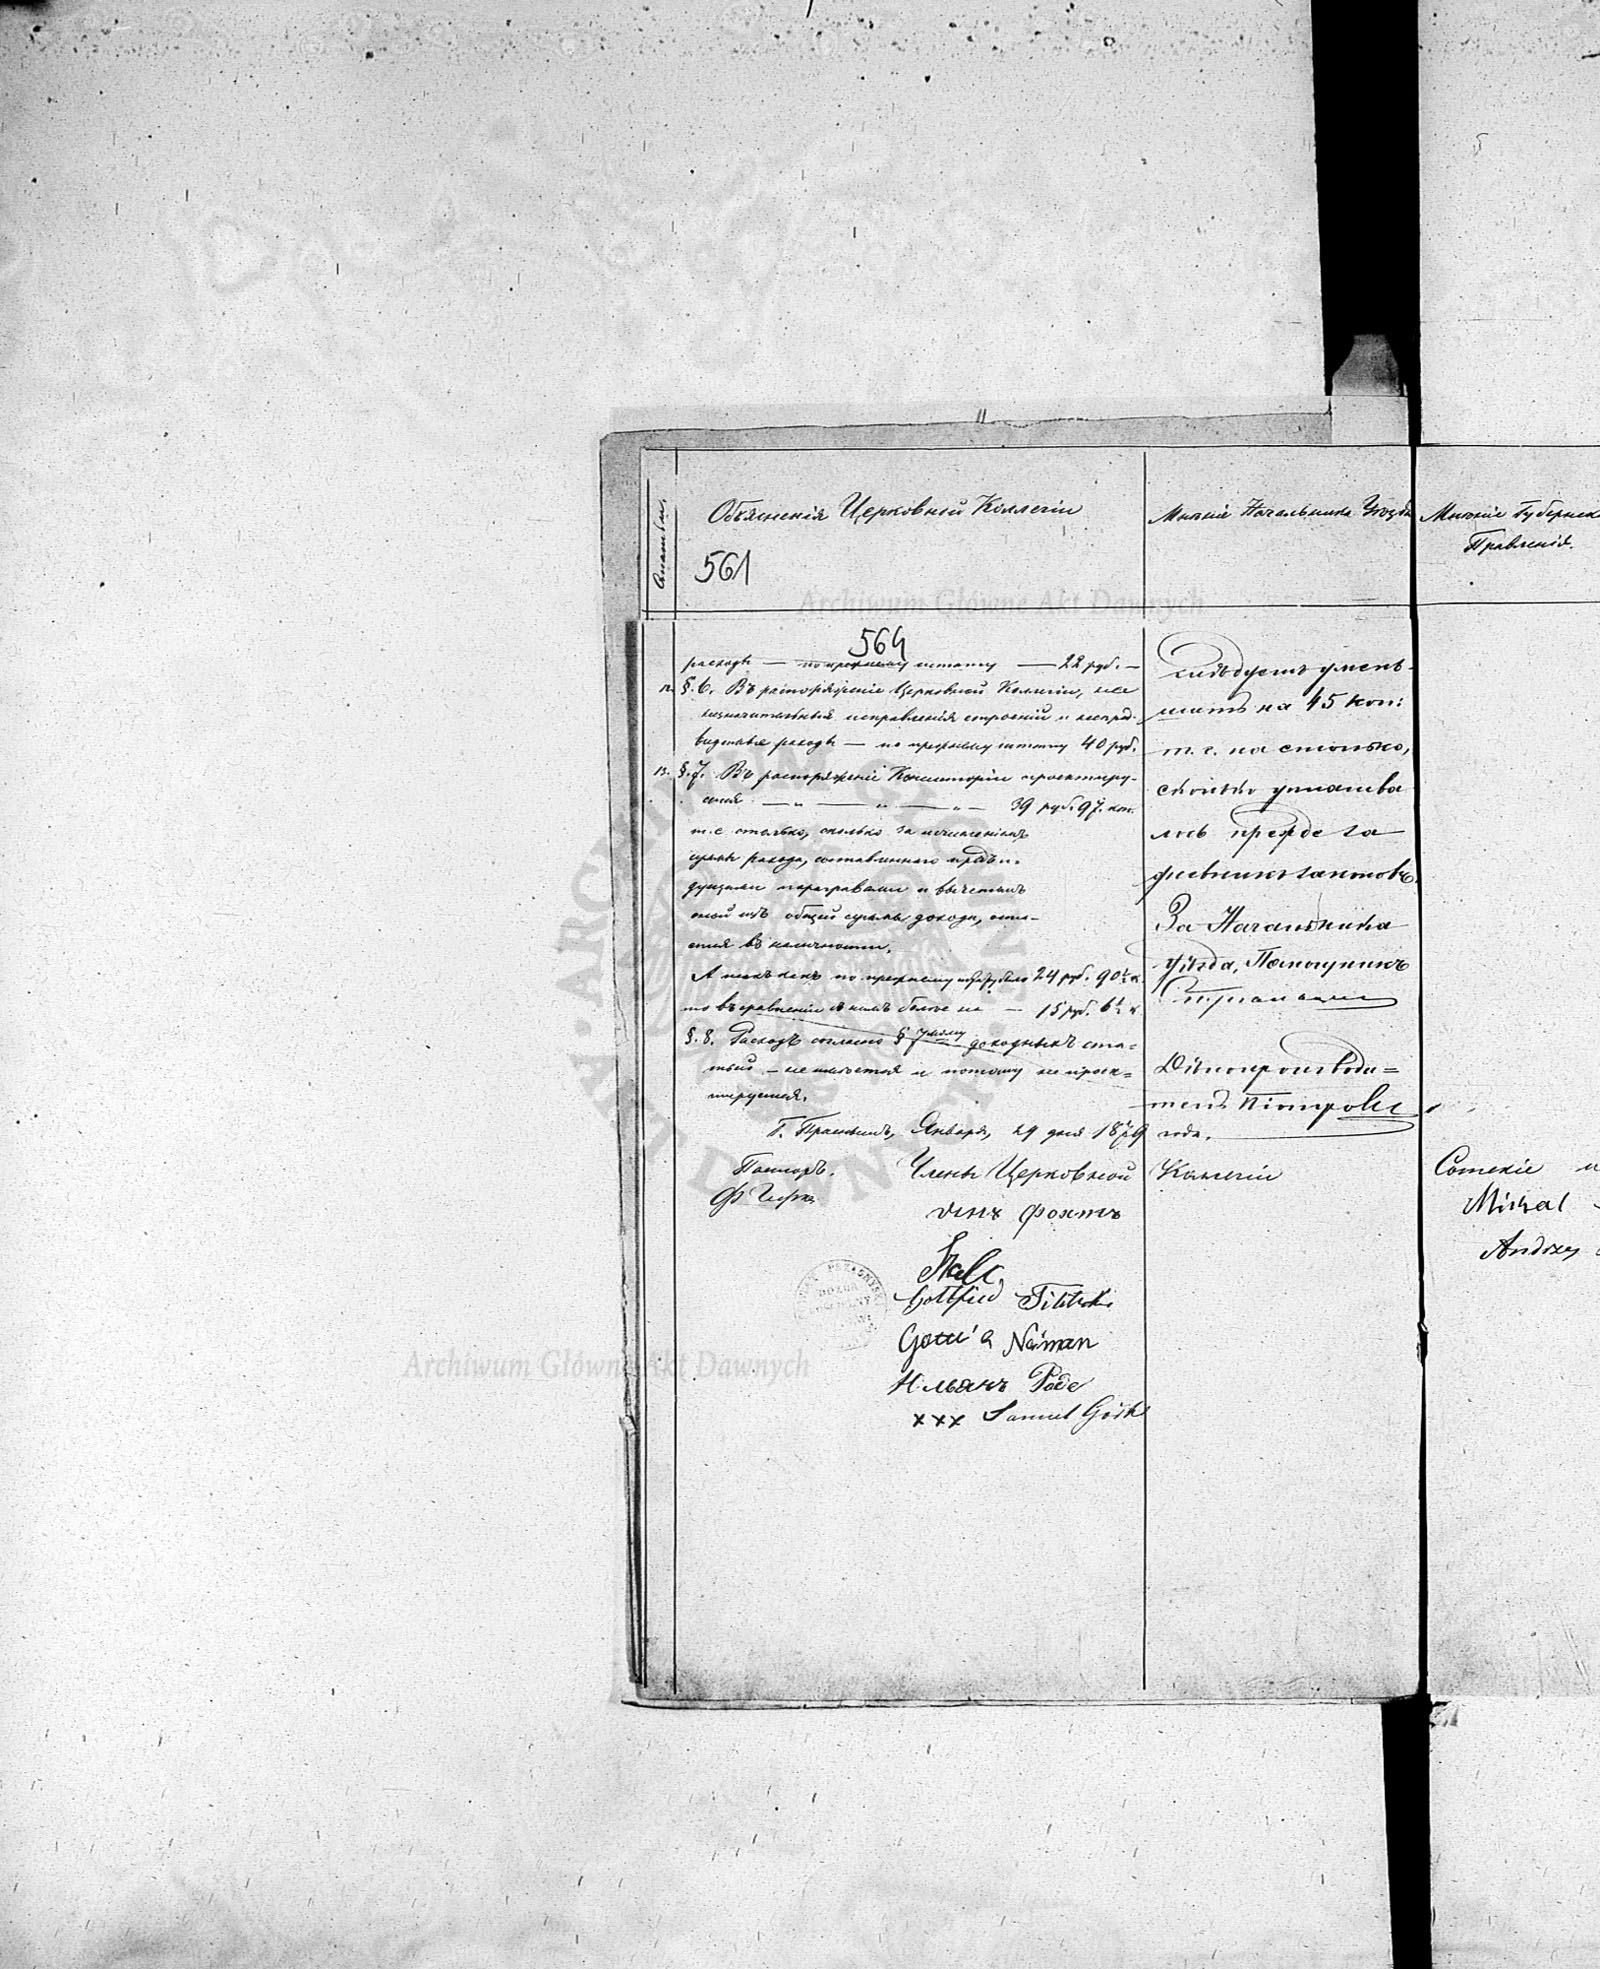 Статьи
Объясненія Церковной Коллегіи
561
Мнѣніе Начальника Уѣзда
Мнѣніе Губернск
Правленія.
Archiwum Główne Akt Dawnych
564
расходы — по прежнему штату — 22 руб. —
12. §. 6. Въ распоряженіе Церковной Коллегіи, на
незначительныя исправленія строеній и непред-
видѣнные расходы — по прежнему штату 40 руб.
13. §. 7. Въ распоряженіи Консисторіи проектиру-
ется — „ — „ — „ — 39 руб. 97. коп.
т. е столько, сколько за исчисленіемъ
суммы расхода, составленнаго преды-
дущими параграфами и вычетомъ
оной изъ общей суммы дохода, оста-
ется въ наличности.
А такъ какъ по прежнему было 24 руб. 90½ к.
то въ сравненіи съ нимъ болѣе на — 15 руб. 6½ к.
§. 8. Расходъ согласно § 7мому доходныхъ ста-
тьей — не имѣется и потому не проек-
тируется.
Г. Праснышъ, Января, 29 дня 1879 года.
Пасторъ.
Члены Церковной Коллегіи
фохтъ
Gottfried
Naiman
Роде
xxx Samuel
слѣдуетъ умень-
шить на 45 коп:
т. е. на столько,
сколько уплачива
лось прежде за
дневникъ законовъ.
За Начальника
Уѣзда, Помощникъ
Дѣлопроизводи=
тель Піотровс
Michal
Andrzej
Archiwum Główne Akt Dawnych